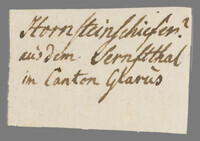 Hornsteinschiefer?
aus dem Sernftthal
in Canton Glarus